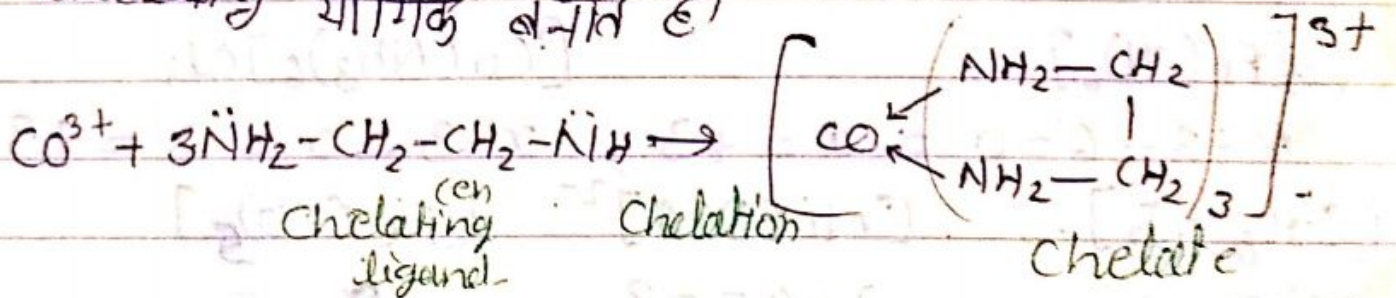 यौगिक बनाते है।
CO³⁺ + 3N̈H₂-CH₂-CH₂-N̈H → [CO (NH₂-CH₂ | NH₂-CH₂)₃]³⁺
(en
Chelating Chelation Chelate
ligand